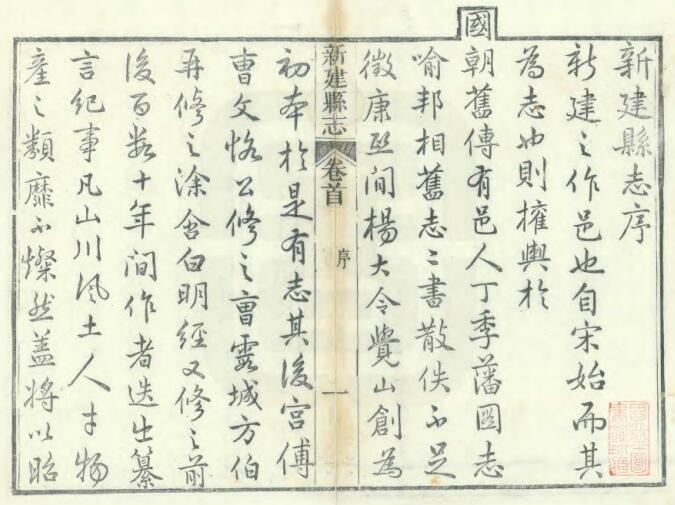 新建縣志序
新建之作邑也自宋始而其
為志也則權輿於
國
朝舊傳有邑人丁季藩圖志
喻邦相舊志二書散佚不足
徵康熙間楊大令覺山創為
新建縣志 卷首 序 一
初本於是有志其後宮傅
曹文恪公修之曹城方伯
再修之涂舍白明經又修之前
後百數十年間作者迭出纂
言紀事凡山川風土人才物
產之類靡不燦然蓋將以昭